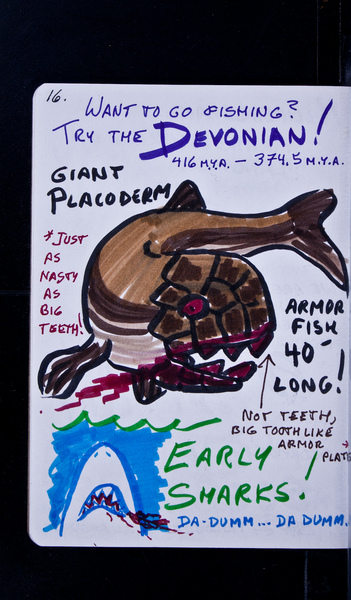 16.
WANT TO GO FISHING?
TRY THE DEVONIAN!
416 M.Y.A. — 374.5 M.Y.A.
GIANT
PLACODERM
*JUST
AS
NASTY
AS
BIG
TEETH!
ARMOR
FISH
40'
LONG!
NOT TEETH,
BIG TOOTH LIKE
ARMOR
PLATE
EARLY
SHARKS!
DA-DUMM... DA DUMM.